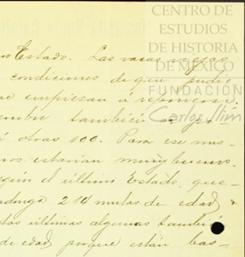 CENTRO DE
ESTUDIOS
DE HISTORIA
DE MÉXICO
FUNDACIÓN
Carlos Slim
Estado. Las vacas
condiciones de que
empiezan á reponerse
también
otras 100. Para ese
estarían muy buenos
según el último Estado, que
214 mulas de edad
últimas algunas
de edad porque están bas-